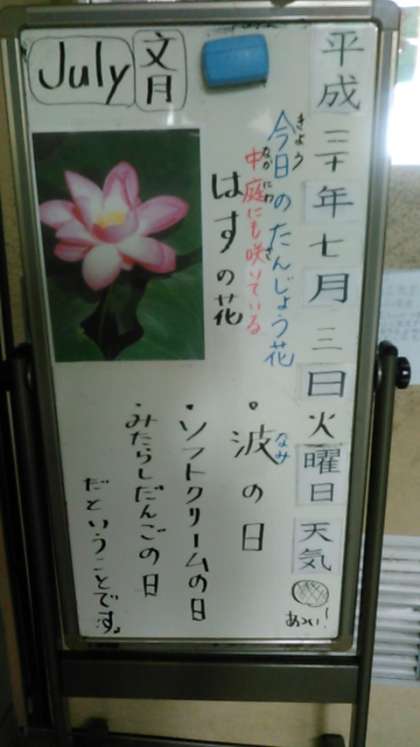 July
文月
平成三十年七月三日火曜日天気
あつい!
きょう
今日のたんじょう花
なかにわ さ
中庭にも咲いている
はすの花
なみ
・波の日
・ソフトクリームの日
・みたらしだんごの日
だということです。